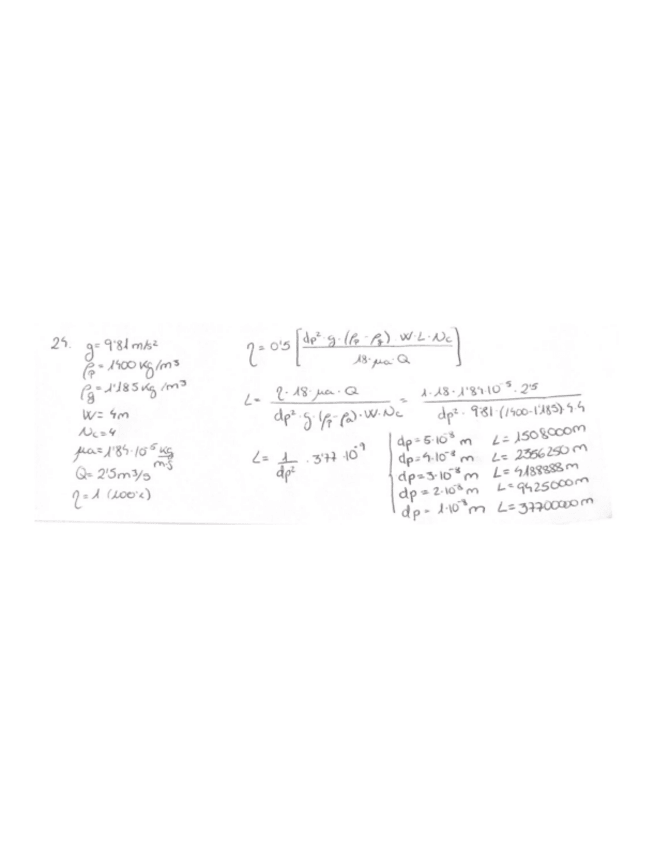 24.
g = 9'81 m/s²
ρp = 1400 kg/m³
ρg = 1'185 kg/m³
W = 4m
Nc = 4
μa = 1'84·10⁻⁵ kg/m·s
Q = 2'5 m³/s
η = 1 (100%)
η = 0'5 [dp²·g·(ρp - ρg)·W·L·Nc / 18·μa·Q]
L = η·18·μa·Q / dp²·g·(ρp - ρa)·W·Nc = 1·18·1'84·10⁻⁵·2'5 / dp²·9'81·(1400-1'185)·4·4
L = 1/dp² · 3'77·10⁻⁹
dp = 5·10⁻⁸ m L = 1508000m
dp = 4·10⁻⁸ m L = 2356250m
dp = 3·10⁻⁸ m L = 4188888m
dp = 2·10⁻⁸ m L = 9425000m
dp = 1·10⁻⁸ m L = 37700000m